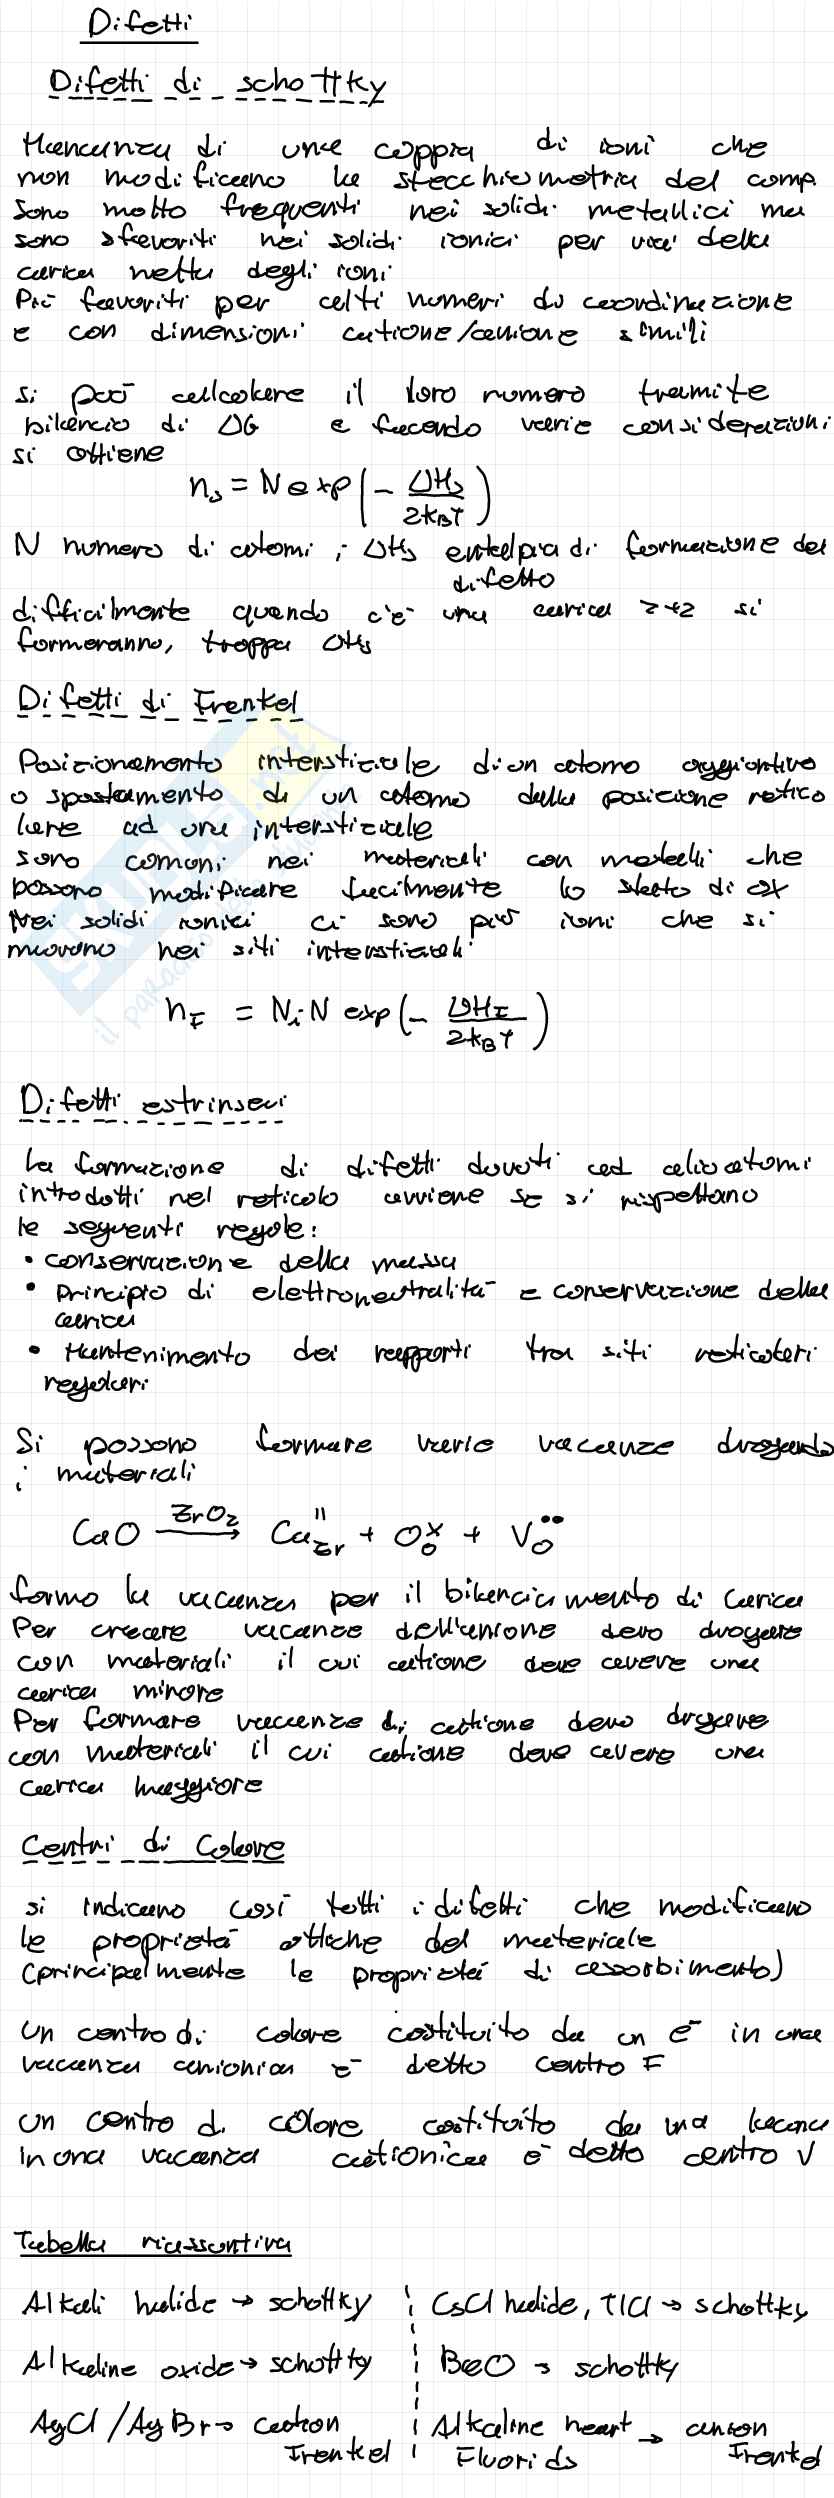 Difetti
Difetti di schottky
Mancanza di una coppia di ioni che
non modificano la stecchiometria del comp.
Sono molto frequenti nei solidi metallici ma
sono sfavoriti nei solidi ionici per via della
carica netta degli ioni
Più favoriti per alti numeri di coordinazione
e con dimensioni catione/anione simili
si può calcolare il loro numero tramite
bilancio di ΔG e facendo varie considerazioni
si ottiene
nₛ = N exp(- ΔHₛ / 2k_BT)
N numero di atomi ; ΔHₛ entalpia di formazione del
difetto
difficilmente quando c'è una carica z+2 si
formeranno, troppa ΔHₛ
Difetti di Frenkel
Posizionamento interstiziale di un atomo aggiuntivo
o spostamento di un atomo dalla posizione retico
lare ad una interstiziale
sono comuni nei materiali con metalli che
possono modificare facilmente lo stato di ox
Nei solidi ionici ci sono più ioni che si
muovono nei siti interstiziali
n_F = NᵢN exp(- ΔH_F / 2k_BT)
Difetti estrinseci
La formazione di difetti dovuti ad aliovatomi
introdotti nel reticolo avviene se si rispettano
le seguenti regole:
• conservazione della massa
• principio di elettroneutralità e conservazione della
carica
• Mantenimento dei rapporti tra siti reticolari
regolari
Si possono formare varie vacanze drogando
i materiali
CaO —ZrO₂→ Ca''_Zr + O_O^x + V_O^••
formo la vacanza per il bilanciamento di carica
Per creare vacanze dell'anione devo drogare
con materiali il cui catione deve avere una
carica minore
Per formare vacanze di catione devo drogare
con materiali il cui catione deve avere una
carica maggiore
Centri di Colore
si indicano così tutti i difetti che modificano
le proprietà ottiche del materiale
(principalmente le proprietà di assorbimento)
Un centro di colore costituito da un e⁻ in una
vacanza anionica è detto centro F
Un centro di colore costituito da una lacuna
in una vacanza cationica è detto centro V
Tabella riassuntiva
Alkali halide → schottky ¦ CsCl halide, TlCl → schottky
Alkaline oxide → schottky ¦ BeO → schottky
AgCl / AgBr → cation ¦ Alkaline heart → anion
Frenkel ¦ Fluorids Frenkel
il parad